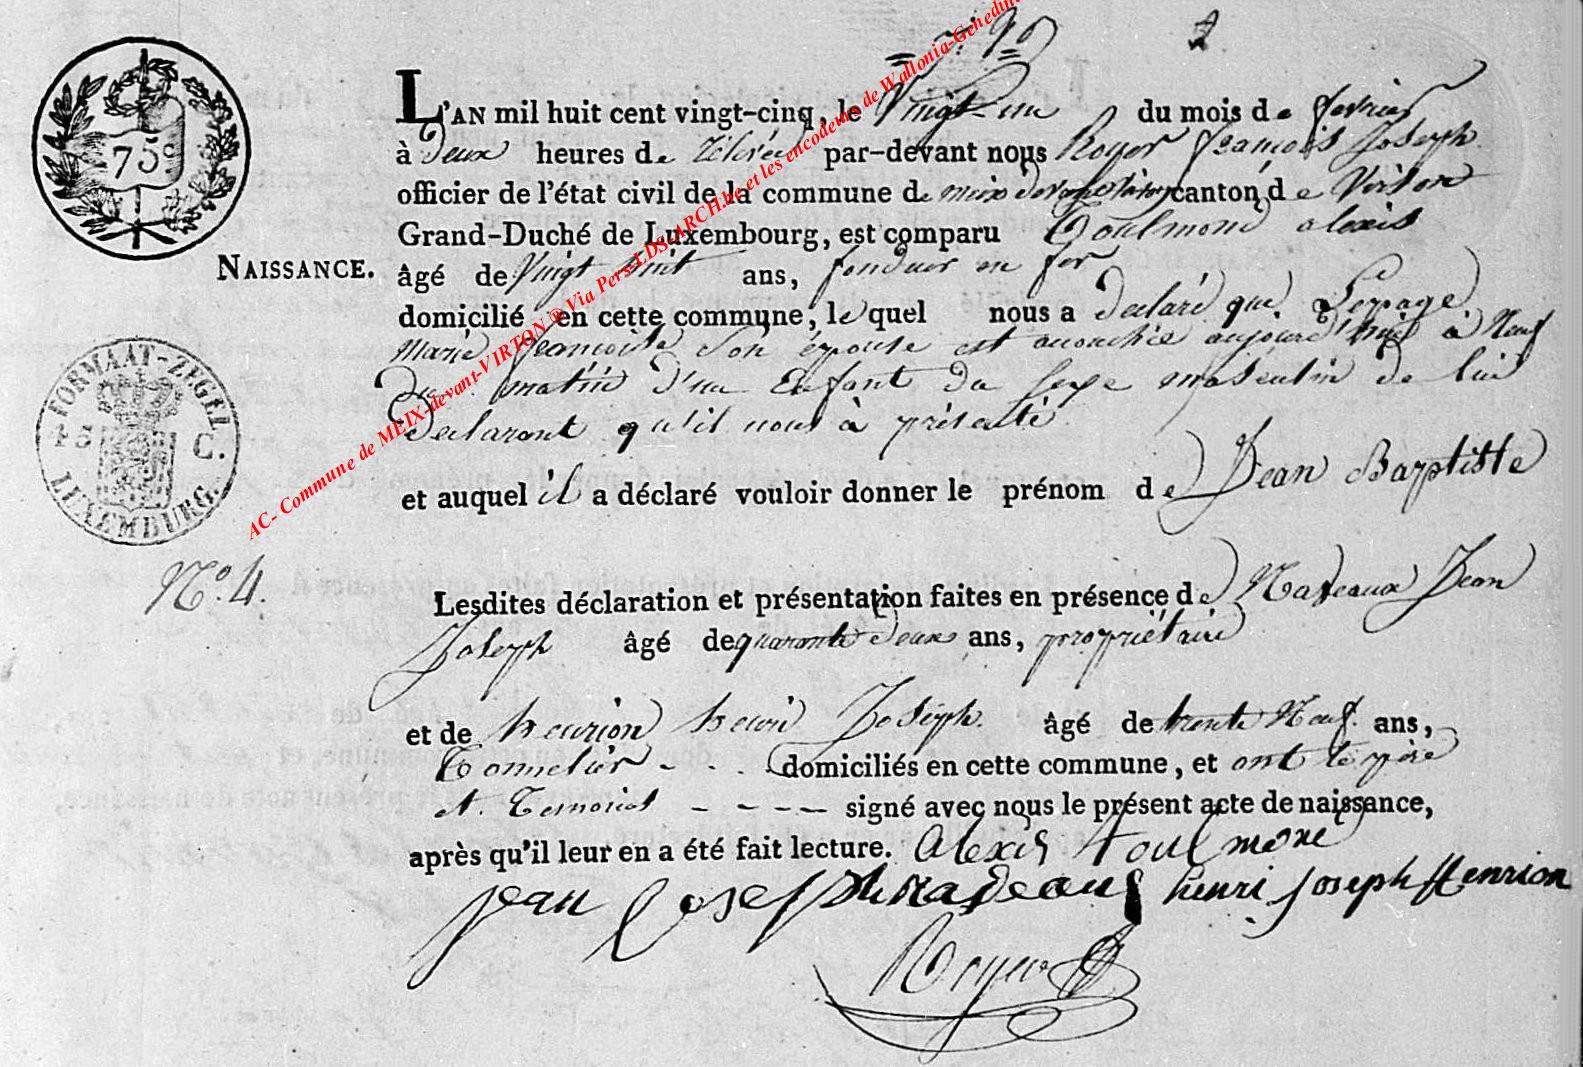 75 c
L'AN mil huit cent vingt-cinq, le Vingt-un du mois de fevrier
à deux heures de rélevée par-devant nous Royer françois Joseph
officier de l'état civil de la commune de meix devant virton canton de Virton
Grand-Duché de Luxembourg, est comparu Toulmond alexis
NAISSANCE.
âgé de Vingt huit ans, fondeur en fer
domicilié en cette commune, le quel nous a declaré que Lepage
Marie françoise son épouse est acouchée aujourd'hui à Neuf
du matin d'un Enfant du sexe masculin de lui
Declarant qu'il nous à présenté
et auquel il a déclaré vouloir donner le prénom de Jean Baptiste
FORMAAT-ZEGEL
45 C.
LUXEMBURG.
N.° 4.
Lesdites déclaration et présentation faites en présence de Nadeaux Jean
Joseph âgé de quarante deux ans, propriétaire
et de henrion henri Joseph. âgé de trente Neuf. ans,
Tonnelier - . . domiciliés en cette commune, et ont le père
et. Temoins - - - - signé avec nous le présent acte de naissance,
après qu'il leur en a été fait lecture. Alexis toulmone
jean joseph nadeaux henri joseph Henrion
Royer
AC- Commune de MEIX-devant-VIRTON ® Via Pers-LDS-ARCH.be et les encodeurs de Wallonia-Genedin